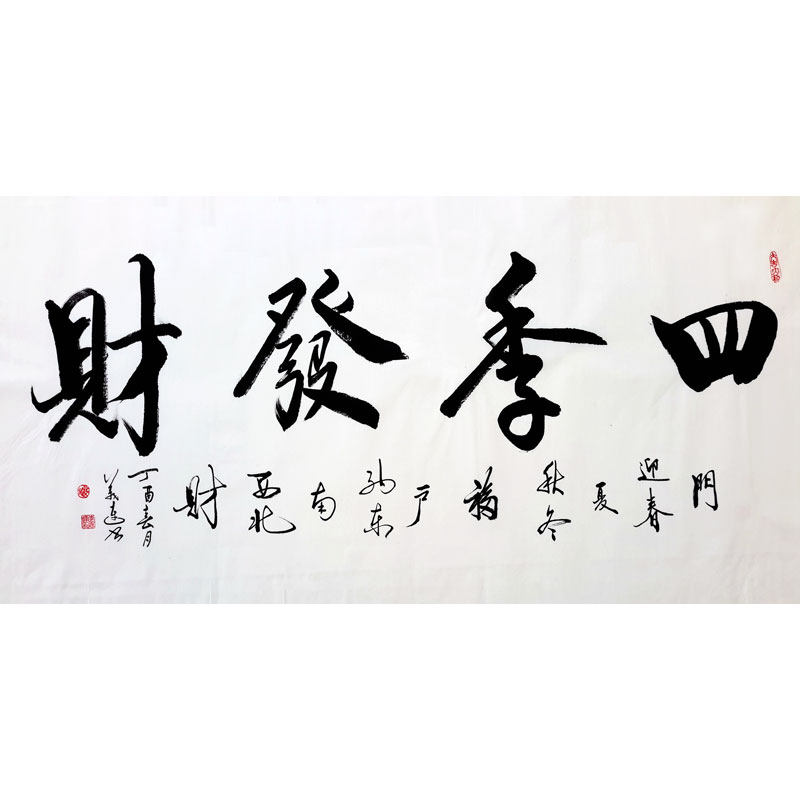 四季發財
門迎春夏秋冬福
户納東南西北財
丁酉春月